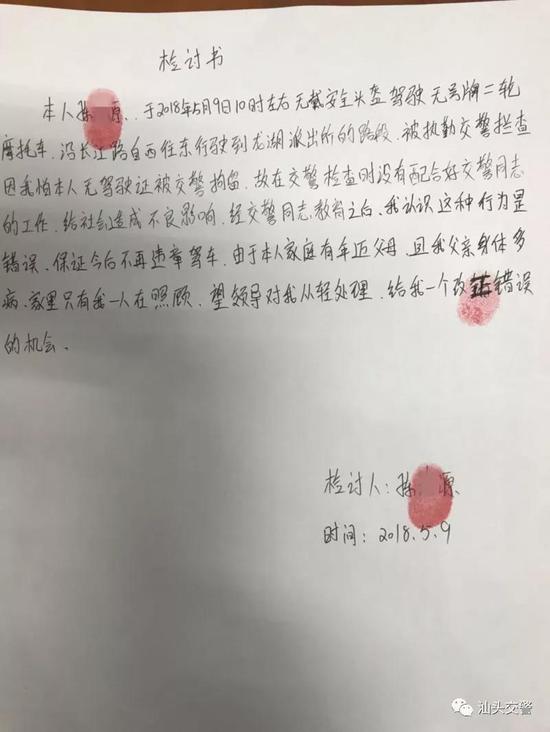 检讨书
本人孙 源、于2018年5月9日10时左右无戴安全头盔驾驶无号牌二轮
摩托车、沿长江路自西往东行驶到龙湖派出所的路段、被执勤交警拦查
因我怕本人无驾驶证被交警拘留、故在交警检查时没有配合好交警同志
的工作、给社会造成不良影响、经交警同志教育之后、我认识这种行为是
错误、保证今后不再违章驾车、由于本人家庭有年迈父母、且我父亲身体多
病、家里只有我一人在照顾、望领导对我从轻处理、给我一个改正错误
的机会、
检讨人：孙 源
时间：2018.5.9
汕头交警